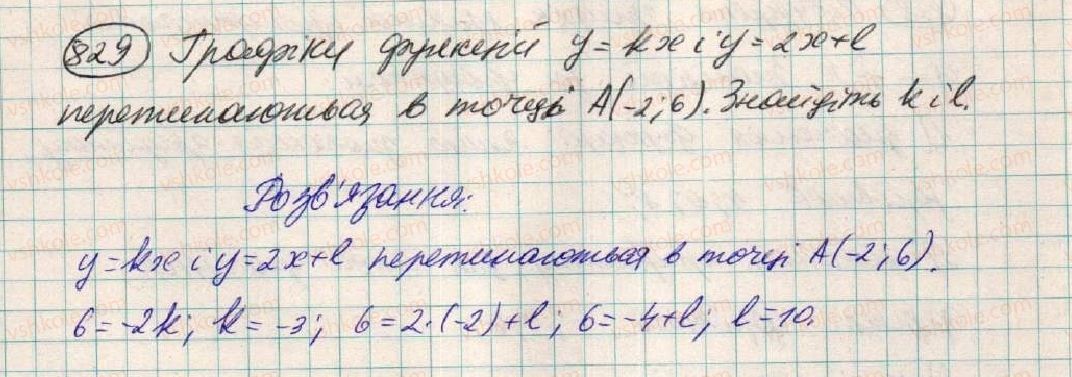 829 Графіки функцій y = kx і y = 2x+l
перетинаються в точці A(-2; 6). Знайдіть k і l.
Розв'язання:
y = kx і y = 2x+l перетинаються в точці A(-2; 6).
6 = -2k; k = -3; 6 = 2·(-2)+l; 6 = -4+l; l = 10.